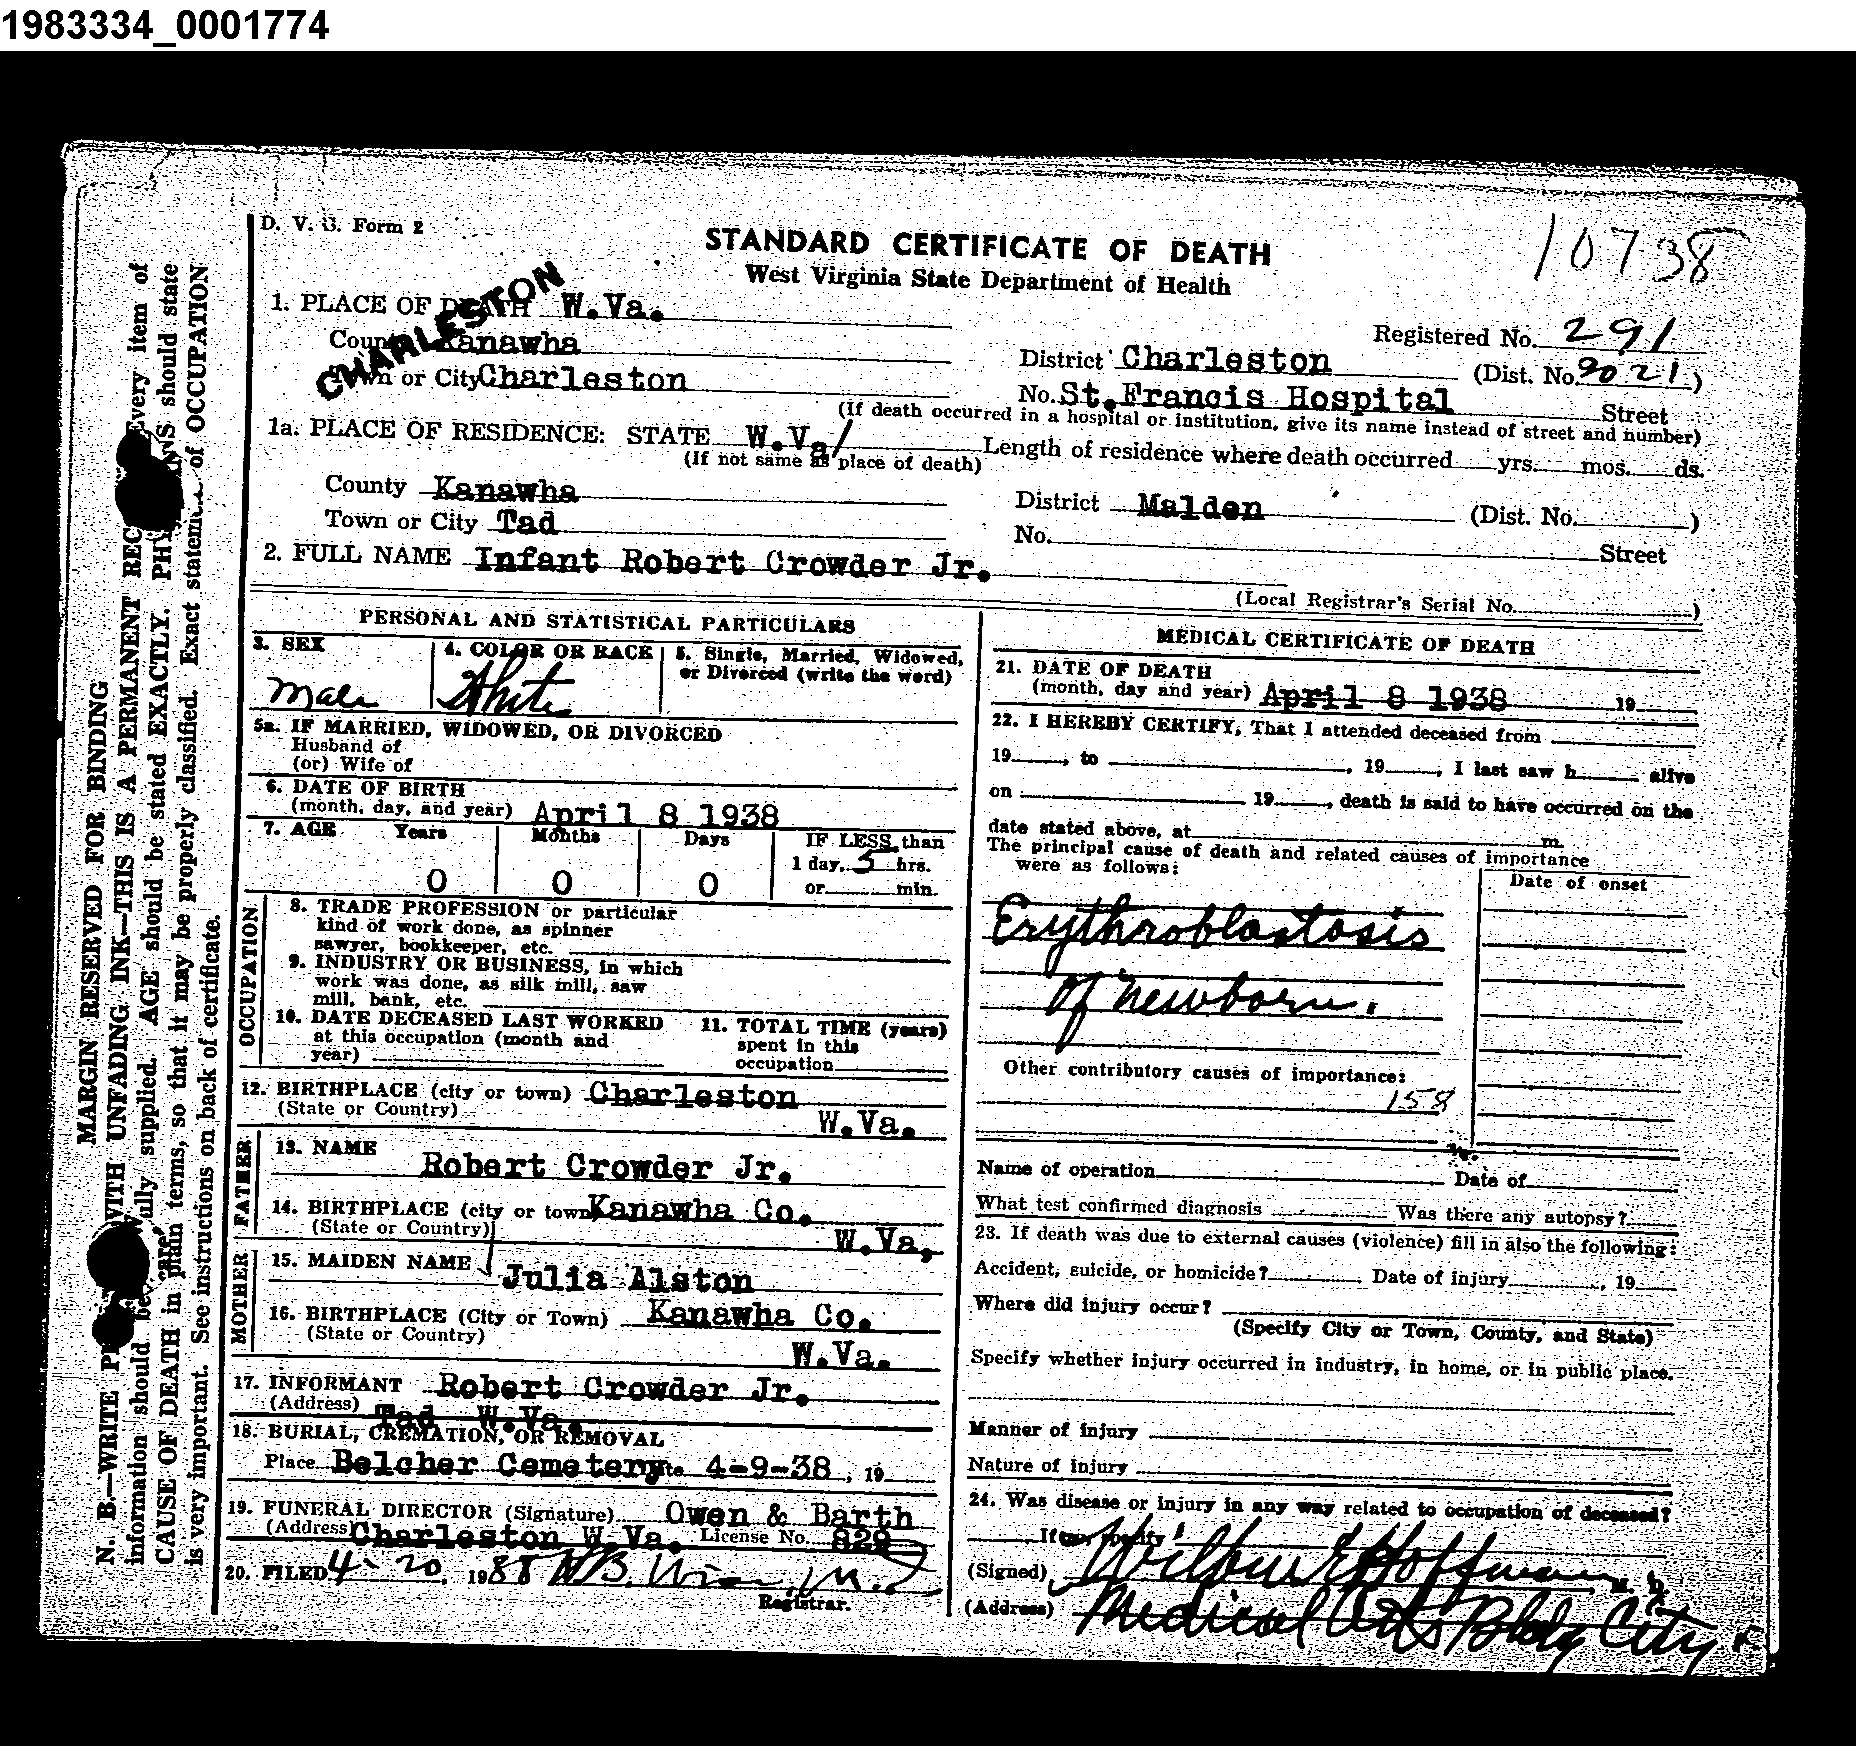 1983334_0001774
D. V. S. Form 2
10738
STANDARD CERTIFICATE OF DEATH
West Virginia State Department of Health
CHARLESTON
1. PLACE OF DEATH W.Va.
County Kanawha
Town or City Charleston
Registered No. 291
District Charleston (Dist. No. 9021)
No. St. Francis Hospital Street
(If death occurred in a hospital or institution, give its name instead of street and number)
1a. PLACE OF RESIDENCE: STATE W.Va/
(If not same as place of death)
Length of residence where death occurred yrs. mos. ds.
County Kanawha
Town or City Tad
District Malden (Dist. No. )
No. Street
2. FULL NAME Infant Robert Crowder Jr.
(Local Registrar's Serial No. )
PERSONAL AND STATISTICAL PARTICULARS
3. SEX Male
4. COLOR OR RACE White
5. Single, Married, Widowed, or Divorced (write the word)
5a. IF MARRIED, WIDOWED, OR DIVORCED
Husband of
(or) Wife of
6. DATE OF BIRTH
(month, day, and year) April 8 1938
7. AGE Years Months Days IF LESS than
1 day, 5 hrs.
0 0 0 or min.
OCCUPATION
8. TRADE PROFESSION or particular
kind of work done, as spinner
sawyer, bookkeeper, etc.
9. INDUSTRY OR BUSINESS, in which
work was done, as silk mill, saw
mill, bank, etc.
10. DATE DECEASED LAST WORKED
at this occupation (month and
year)
11. TOTAL TIME (years)
spent in this
occupation
12. BIRTHPLACE (city or town) Charleston
(State or Country) W.Va.
FATHER
13. NAME
Robert Crowder Jr.
14. BIRTHPLACE (city or town) Kanawha Co.
(State or Country) W.Va,
MOTHER
15. MAIDEN NAME
Julia Alston
16. BIRTHPLACE (City or Town) Kanawha Co.
(State or Country)
W.Va.
17. INFORMANT Robert Crowder Jr.
(Address) Tad W.Va.
18. BURIAL, CREMATION, OR REMOVAL
Place Belcher Cemetery Date 4-9-38, 19
19. FUNERAL DIRECTOR (Signature) Owen & Barth
(Address) Charleston W.Va. License No. 829
20. FILED 4-20, 1938
Registrar.
MEDICAL CERTIFICATE OF DEATH
21. DATE OF DEATH
(month, day and year) April 8 1938 19
22. I HEREBY CERTIFY, That I attended deceased from
19 , to , 19 , I last saw h alive
on 19 , death is said to have occurred on the
date stated above, at m.
The principal cause of death and related causes of importance
were as follows:
Date of onset
Erythroblastosis
of newborn.
Other contributory causes of importance:
158
Name of operation Date of
What test confirmed diagnosis Was there any autopsy?
23. If death was due to external causes (violence) fill in also the following:
Accident, suicide, or homicide? Date of injury , 19
Where did injury occur?
(Specify City or Town, County, and State)
Specify whether injury occurred in industry, in home, or in public place.
Manner of injury
Nature of injury
24. Was disease or injury in any way related to occupation of deceased?
If so, specify
(Signed) Wilbur E Hoffman
(Address) Medical Arts Bldg City
MARGIN RESERVED FOR BINDING
WITH UNFADING INK—THIS IS A PERMANENT REC
Every item of
information should be fully supplied. AGE should be stated EXACTLY.
should state
CAUSE OF DEATH in plain terms, so that it may be properly classified. Exact statement of OCCUPATION
is very important. See instructions on back of certificate.
N. B.—WRITE